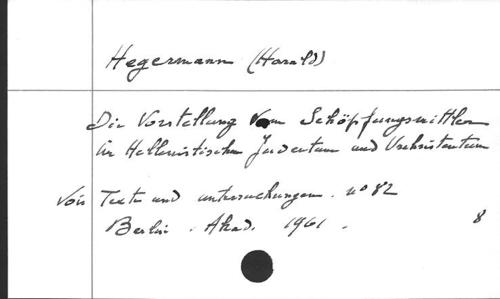 Hegermann (Harald)
Die Vorstellung vom Schöpfungsmittler
im Hellenistischen Judentum und Urchristentum
Voir Texte und untersuchungen. n° 82
Berlin. Akad. 1961.
8